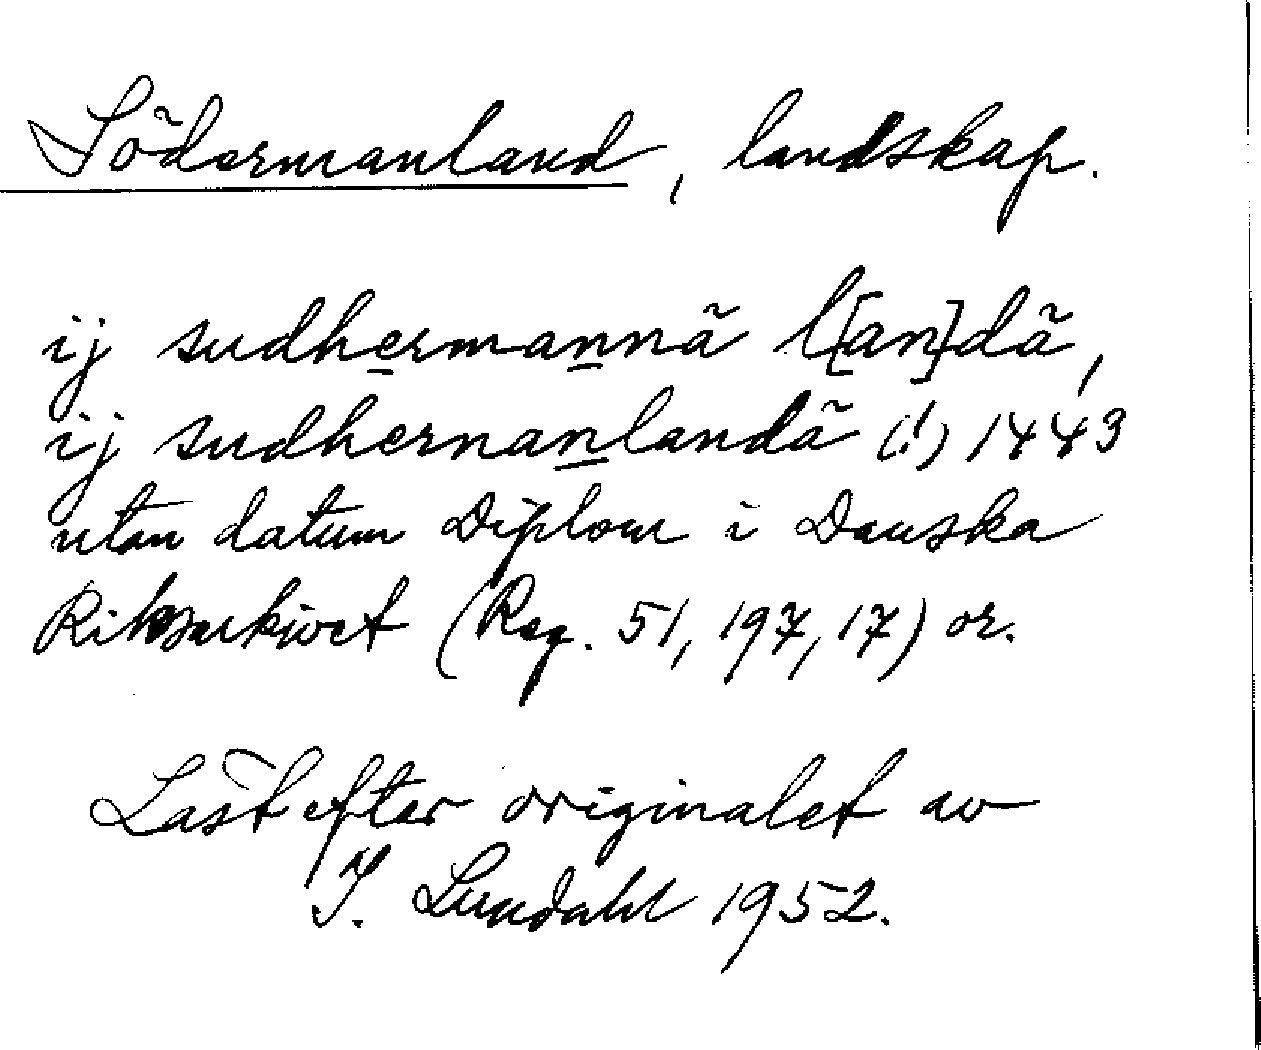 Södermanland, landskap.
ij sudhermannã l[an]dã,
ij sudhernanlandã (!) 1443
utan datum Diplom i Danska
Riksarkivet (Reg. 51, 197, 17) or.
Läst efter originalet av
I. Lundahl 1952.